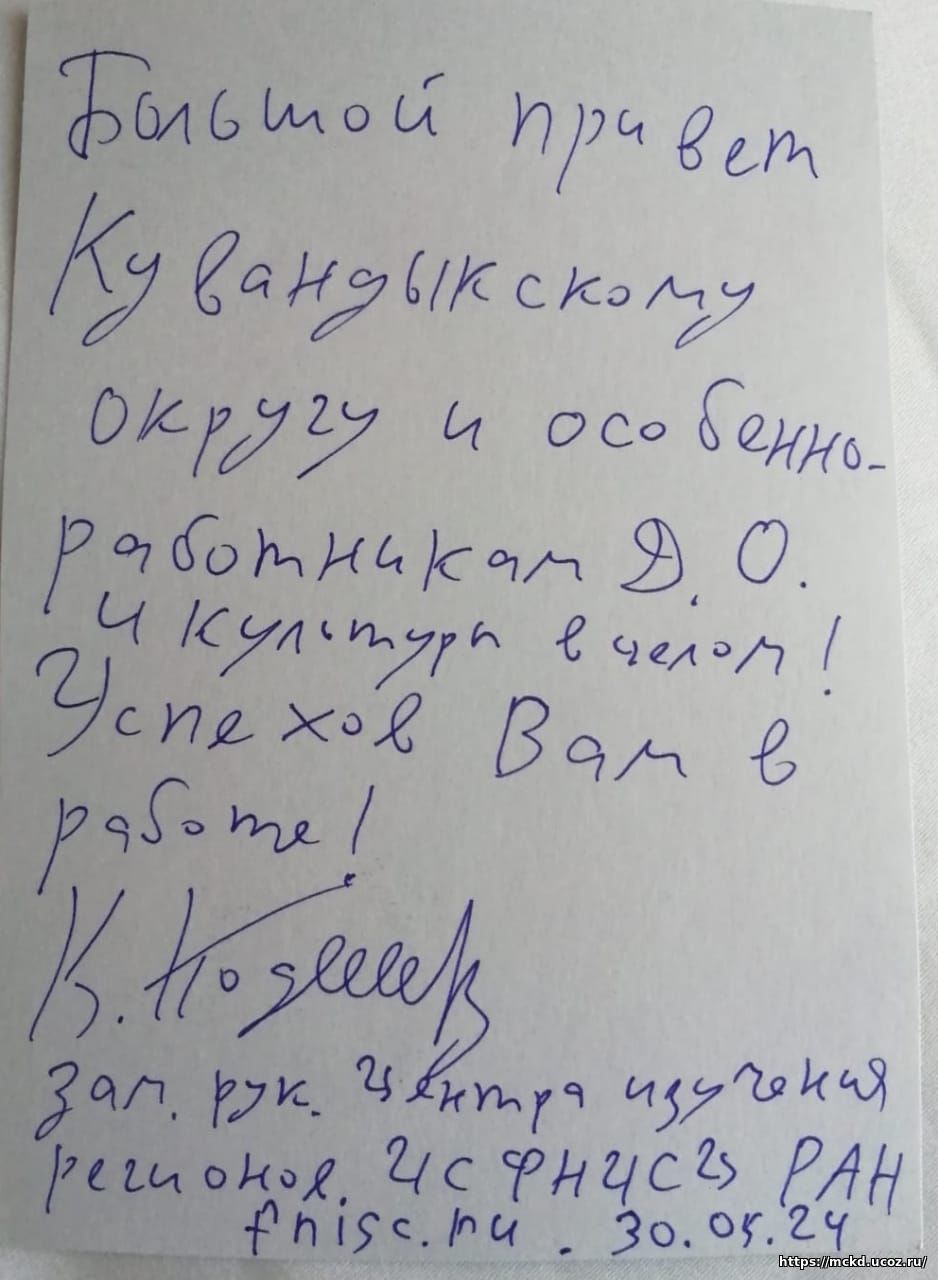 Большой привет
Кувандыкскому
округу и особенно-
работникам Д.О.
и культуры в целом!
Успехов Вам в
работе!
К.
зам. рук. Центра изучения
регионов. ИС ФНИСЦ РАН
fnisc.ru. 30.05.24
https://mckd.ucoz.ru/